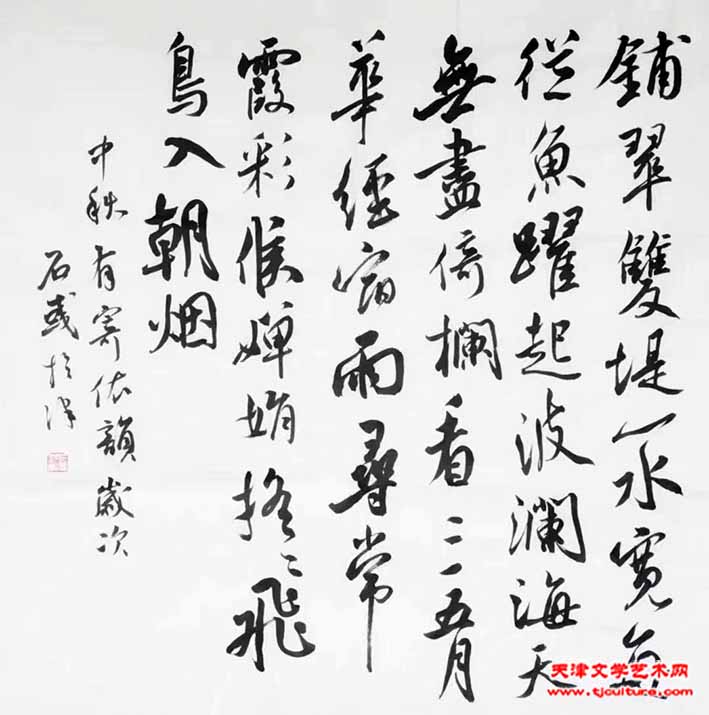 鋪翠雙堤一水寬
從魚躍起波瀾海天
無盡倚欄看三五月
華經宿雨尋常
霞彩候嬋娟飛
鳥入朝烟
中秋有寄依韻歲次
石於津
天津文学艺术网
www.tjculture.com